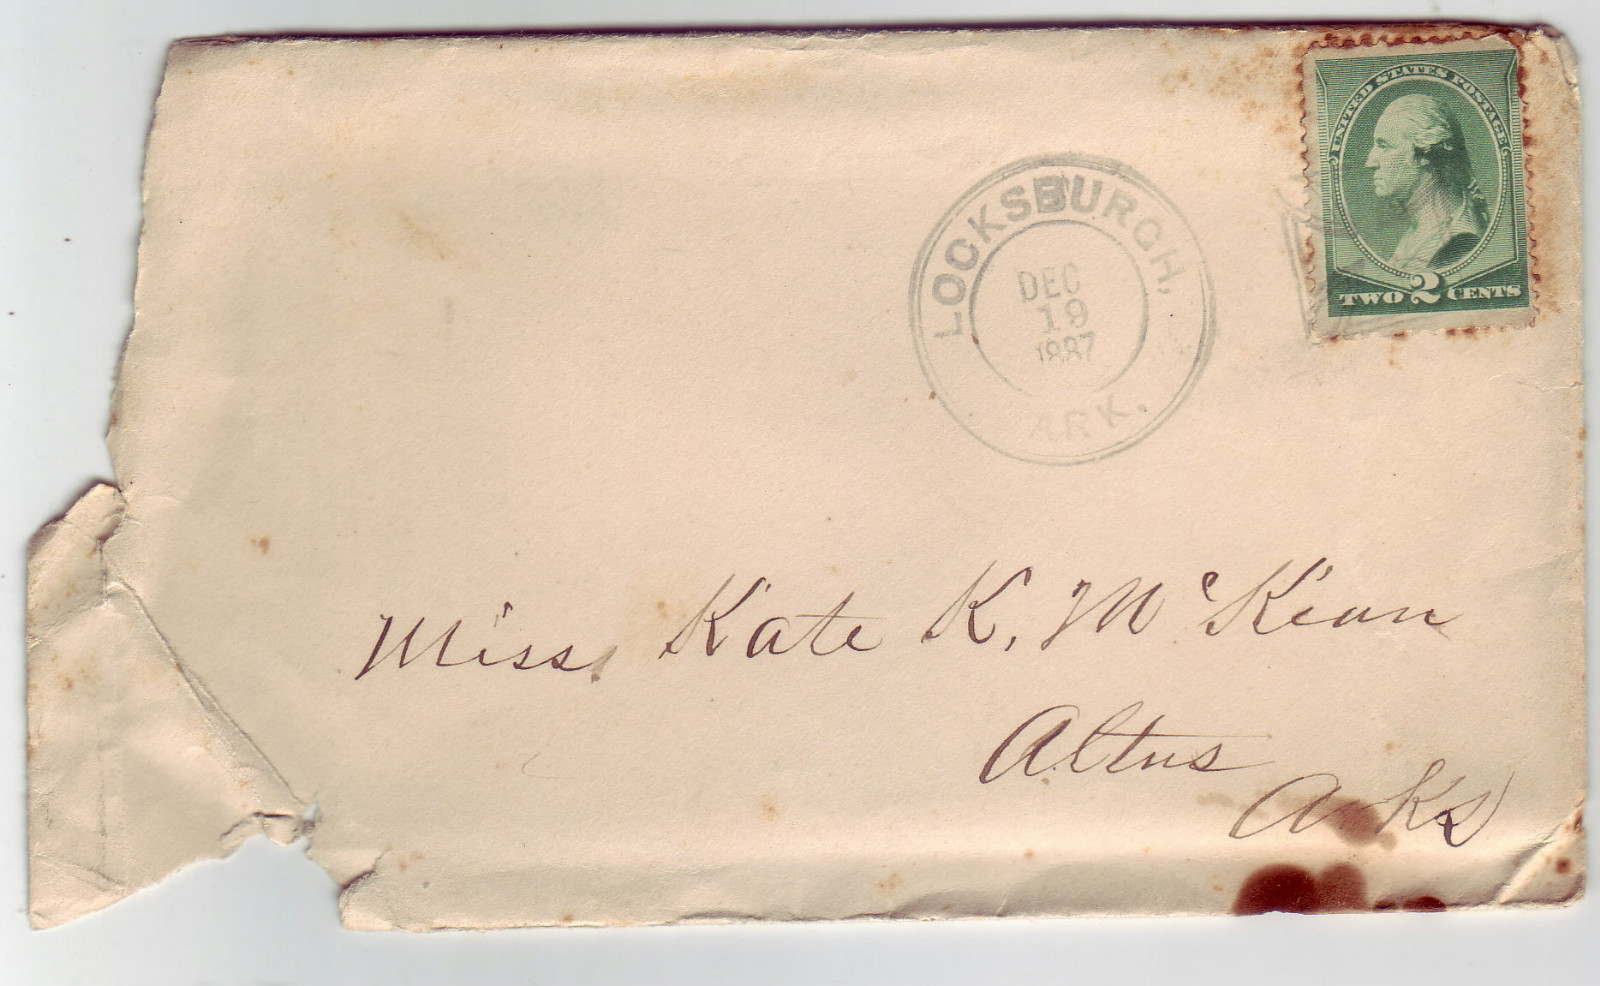 UNITED STATES POSTAGE
TWO 2 CENTS
LOCKSBURGH,
DEC
19
1887
ARK.
Miss, Kate K. Mc Kean
Altus
Arks